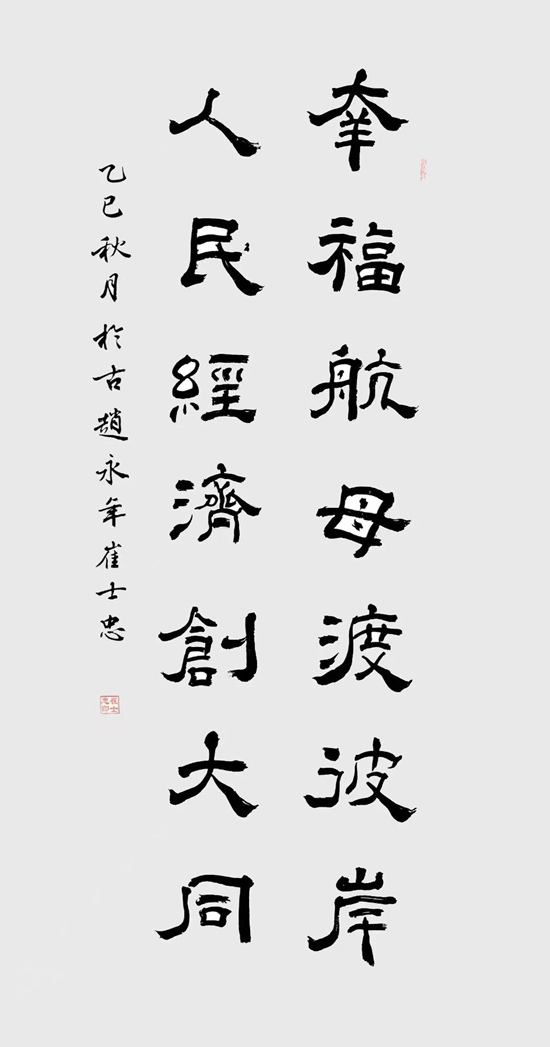 幸福航母渡彼岸
人民經濟創大同
乙巳秋月於古趙永年崔士忠
崔士忠印